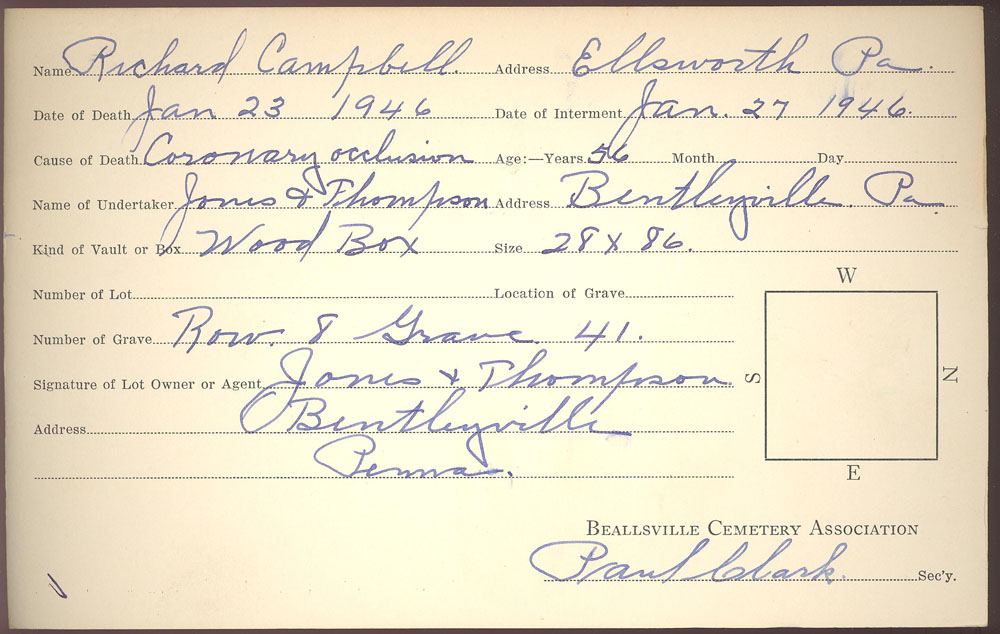 Name Richard Campbell. Address Ellsworth Pa.
Date of Death Jan 23 1946 Date of Interment Jan. 27 1946.
Cause of Death Coronary occlusion Age:—Years 56 Month Day
Name of Undertaker Jones & Thompson Address Bentleyville. Pa.
Kind of Vault or Box Wood Box Size 28 X 86.
Number of Lot Location of Grave
W
Number of Grave Row. 8 Grave 41.
Signature of Lot Owner or Agent Jones & Thompson
S N
Address Bentleyville
Penna.
E
Beallsville Cemetery Association
Paul Clark. Sec'y.